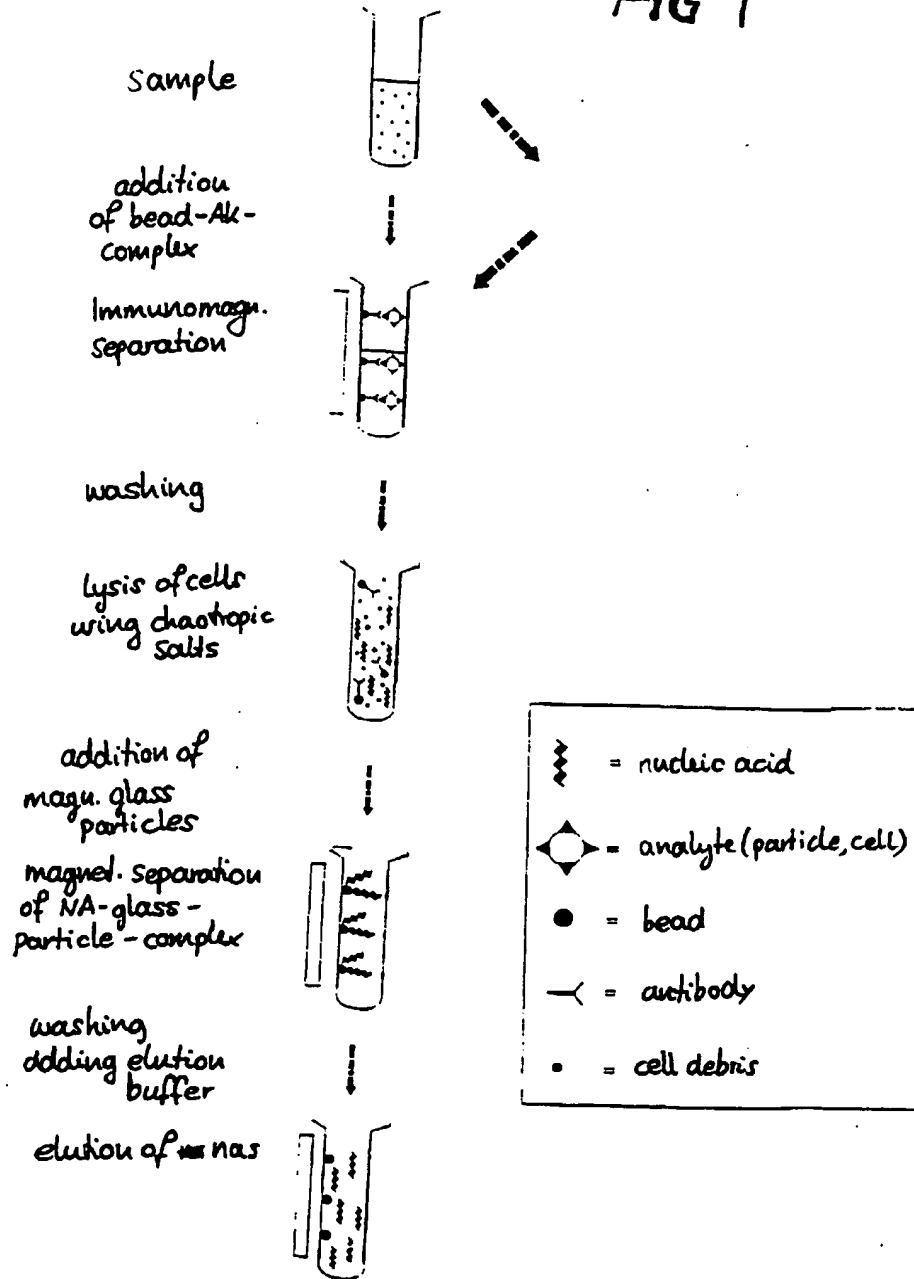 FIG 1
sample
addition
of bead-AK-
complex
Immunomagn.
separation
washing
lysis of cells
wing chaotropic
salts
addition of
magn. glass
particles
magnet. separation
of NA-glass-
particle-complex
washing
adding elution
buffer
elution of nas
= nucleic acid
= analyte (particle, cell)
= bead
= antibody
= cell debris